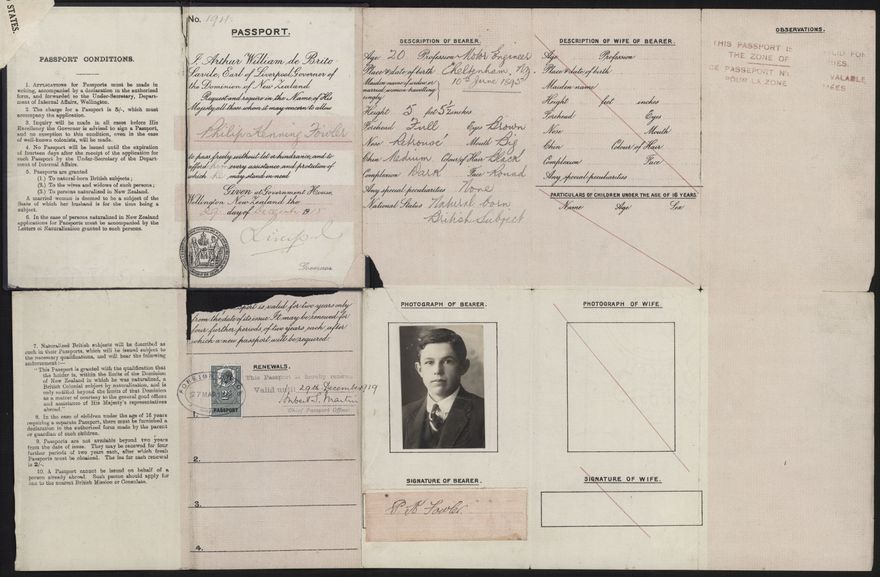 STATES.
PASSPORT CONDITIONS.
1. APPLICATIONS for Passports must be made in
writing, accompanied by a declaration in the authorized
form, and forwarded to the Under-Secretary, Depart-
ment of Internal Affairs, Wellington.
2. The charge for a Passport is 5/-, which must
accompany the application.
3. Inquiry will be made in all cases before His
Excellency the Governor is advised to sign a Passport,
and no exception to this condition, even in the case
of well-known colonists, will be made.
4. No Passport will be issued until the expiration
of fourteen days after the receipt of the application for
such Passport by the Under-Secretary of the Depart-
ment of Internal Affairs.
5. Passports are granted
(1.) To natural-born British subjects;
(2.) To the wives and widows of such persons;
(3.) To persons naturalized in New Zealand.
A married woman is deemed to be a subject of the
State of which her husband is for the time being a
subject.
6. In the case of persons naturalized in New Zealand
applications for Passports must be accompanied by the
Letters of Naturalization granted to such persons.
No.
PASSPORT.
I, Arthur William de Brito
Savile, Earl of Liverpool, Governor of
the Dominion of New Zealand
Request and require in the Name of His
Majesty all those whom it may concern to allow
Philip Henning Fowler
to pass freely without let or hindrance, and to
afford him every assistance and protection of
which he may stand in need
Given at Government House,
Wellington New Zealand the
29 day of December 1915
Liverpool
Governor
DESCRIPTION OF BEARER.
Age 20 Profession Motor Engineer
Place & date of birth Cheltenham, N.Z.
10th June 1895
Maiden name if widow or
married woman travelling
singly
Height 5 feet 5½ inches
Forehead Full Eyes Brown
Nose Retrousé Mouth Big
Chin Medium Colour of Hair Black
Complexion Dark Face Round
Any special peculiarities None
National Status Natural born
British Subject
DESCRIPTION OF WIFE OF BEARER.
Age Profession
Place & date of birth
Maiden name
Height feet inches
Forehead Eyes
Nose Mouth
Chin Colour of Hair
Complexion Face
Any special peculiarities
PARTICULARS OF CHILDREN UNDER THE AGE OF 16 YEARS
Name Age Sex
OBSERVATIONS.
THIS PASSPORT IS VALID FOR
THE ZONE OF
CE PASSEPORT VALABLE
POUR LA ZONE
7. Naturalized British subjects will be described as
such in their Passports, which will be issued subject to
the necessary qualifications, and will bear the following
endorsement:—
"This Passport is granted with the qualification that
the holder is, within the limits of the Dominion
of New Zealand in which he was naturalized, a
British Colonial subject by naturalization, and is
only entitled beyond the limits of that Dominion
as a matter of courtesy to the general good offices
and assistance of His Majesty's representatives
abroad."
8. In the case of children under the age of 16 years
requiring a separate Passport, there must be furnished a
declaration in the authorized form made by the parent
or guardian of such children.
9. Passports are not available beyond two years
from the date of issue. They may be renewed for four
further periods of two years each, after which fresh
Passports must be obtained. The fee for each renewal
is 2/-.
10. A Passport cannot be issued on behalf of a
person already abroad. Such person should apply for
one to the nearest British Mission or Consulate.
port is valid for two years only
from the date of its issue. It may be renewed for
four further periods of two years each, after
which a new passport will be required
RENEWALS.
FOREIGN
27 MAR
PASSPORT
This Passport is hereby renewed
Valid until 29th December 1919
Chief Passport Officer
1.
2.
3.
4.
PHOTOGRAPH OF BEARER.
SIGNATURE OF BEARER.
P H Fowler
PHOTOGRAPH OF WIFE.
SIGNATURE OF WIFE.